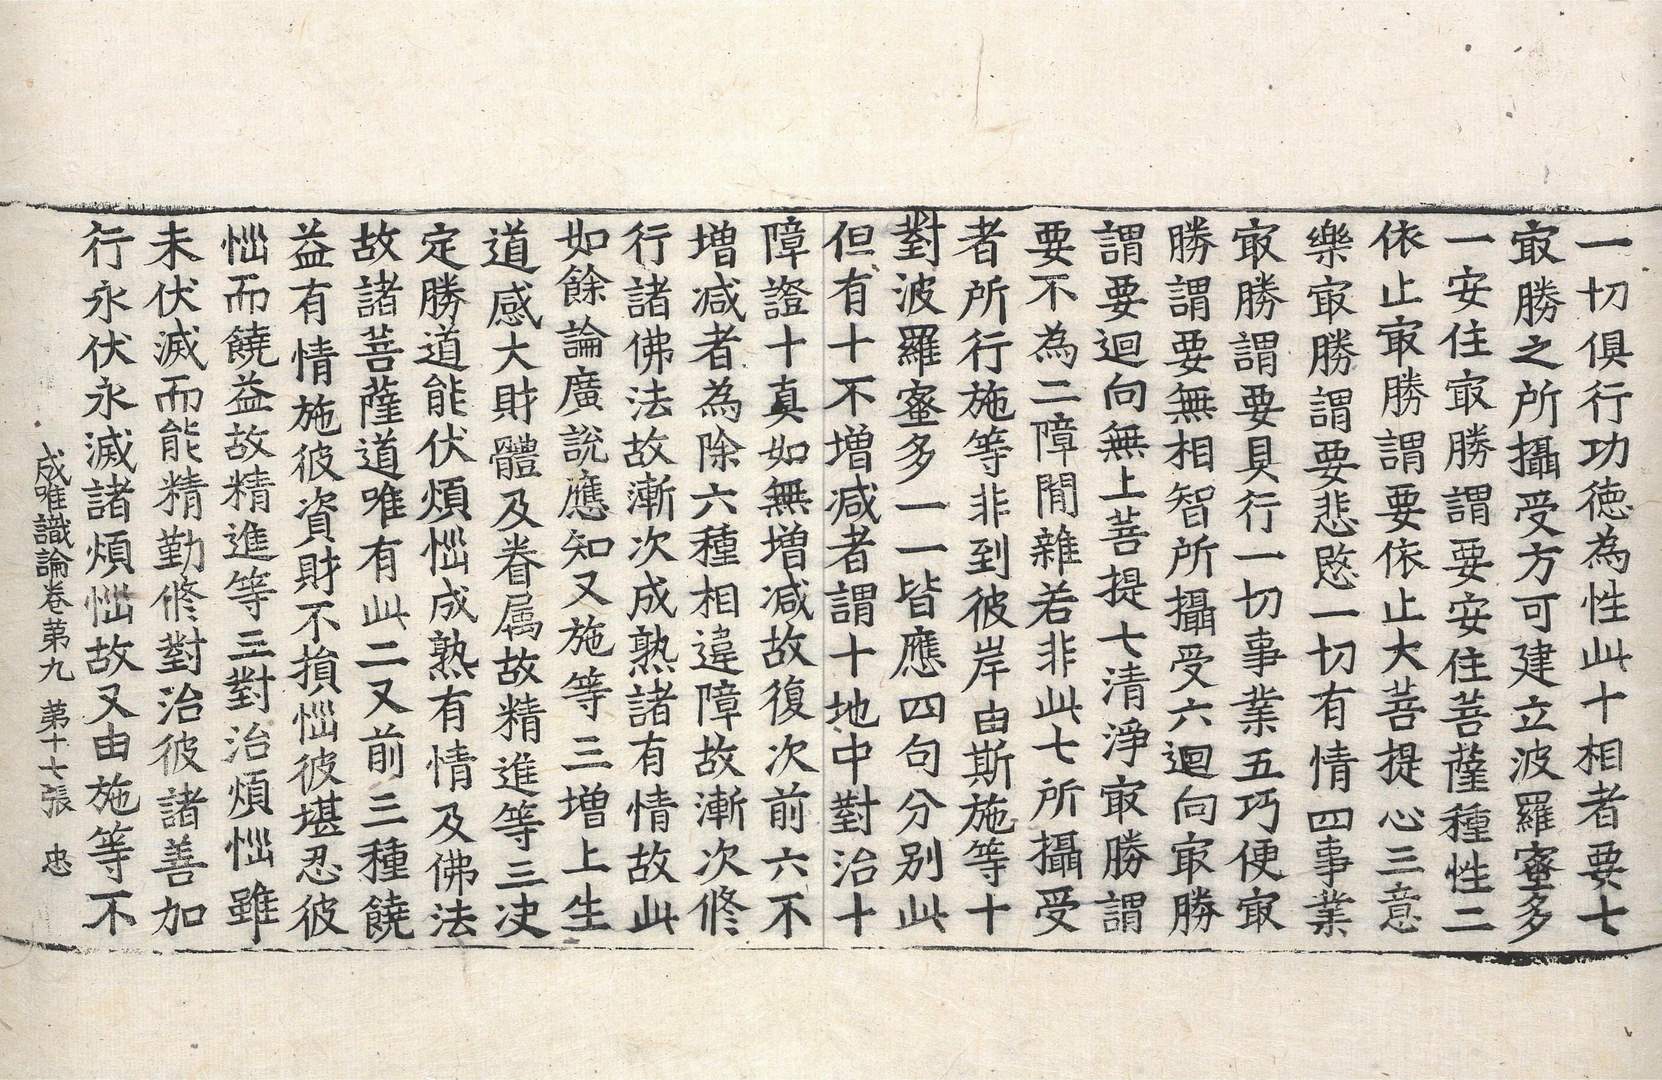 一切俱行功德為性此十相者要七
㝡勝之所攝受方可建立波羅蜜多
一安住㝡勝謂要安住菩薩種性二
依止㝡勝謂要依止大菩提心三意
樂㝡勝謂要悲愍一切有情四事業
㝡勝謂要具行一切事業五巧便㝡
勝謂要無相智所攝受六迴向㝡勝
謂要迴向無上菩提七清淨㝡勝謂
要不為二障閒雜若非此七所攝受
者所行施等非到彼岸由斯施等十
對波羅蜜多一一皆應四句分別此
但有十不增減者謂十地中對治十
障證十真如無增減故復次前六不
增減者為除六種相違障故漸次修
行諸佛法故漸次成熟諸有情故此
如餘論廣說應知又施等三增上生
道感大財體及眷属故精進等三决
定勝道能伏煩惱成熟有情及佛法
故諸菩薩道唯有此二又前三種饒
益有情施彼資財不損惱彼堪忍彼
惱而饒益故精進等三對治煩惱雖
未伏滅而能精勤修對治彼諸善加
行永伏永滅諸煩惱故又由施等不
成唯識論卷第九 第十七張 忠